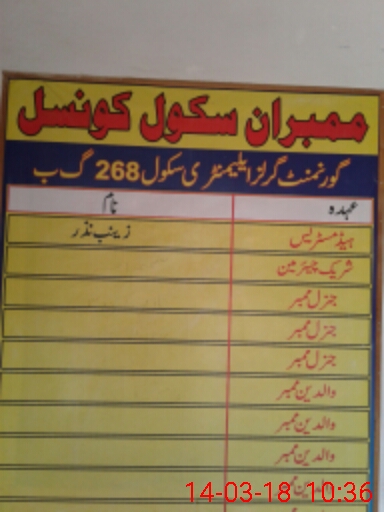 ممبران سکول کونسل
گورنمنٹ گرلز ایلیمنٹری سکول 268 گ ب
عہدہ نام
ہیڈمسٹریس زینب نذر
شریک چیئرمین
جنرل ممبر
جنرل ممبر
جنرل ممبر
والدین ممبر
والدین ممبر
والدین ممبر
والدین ممبر
14-03-18 10:36